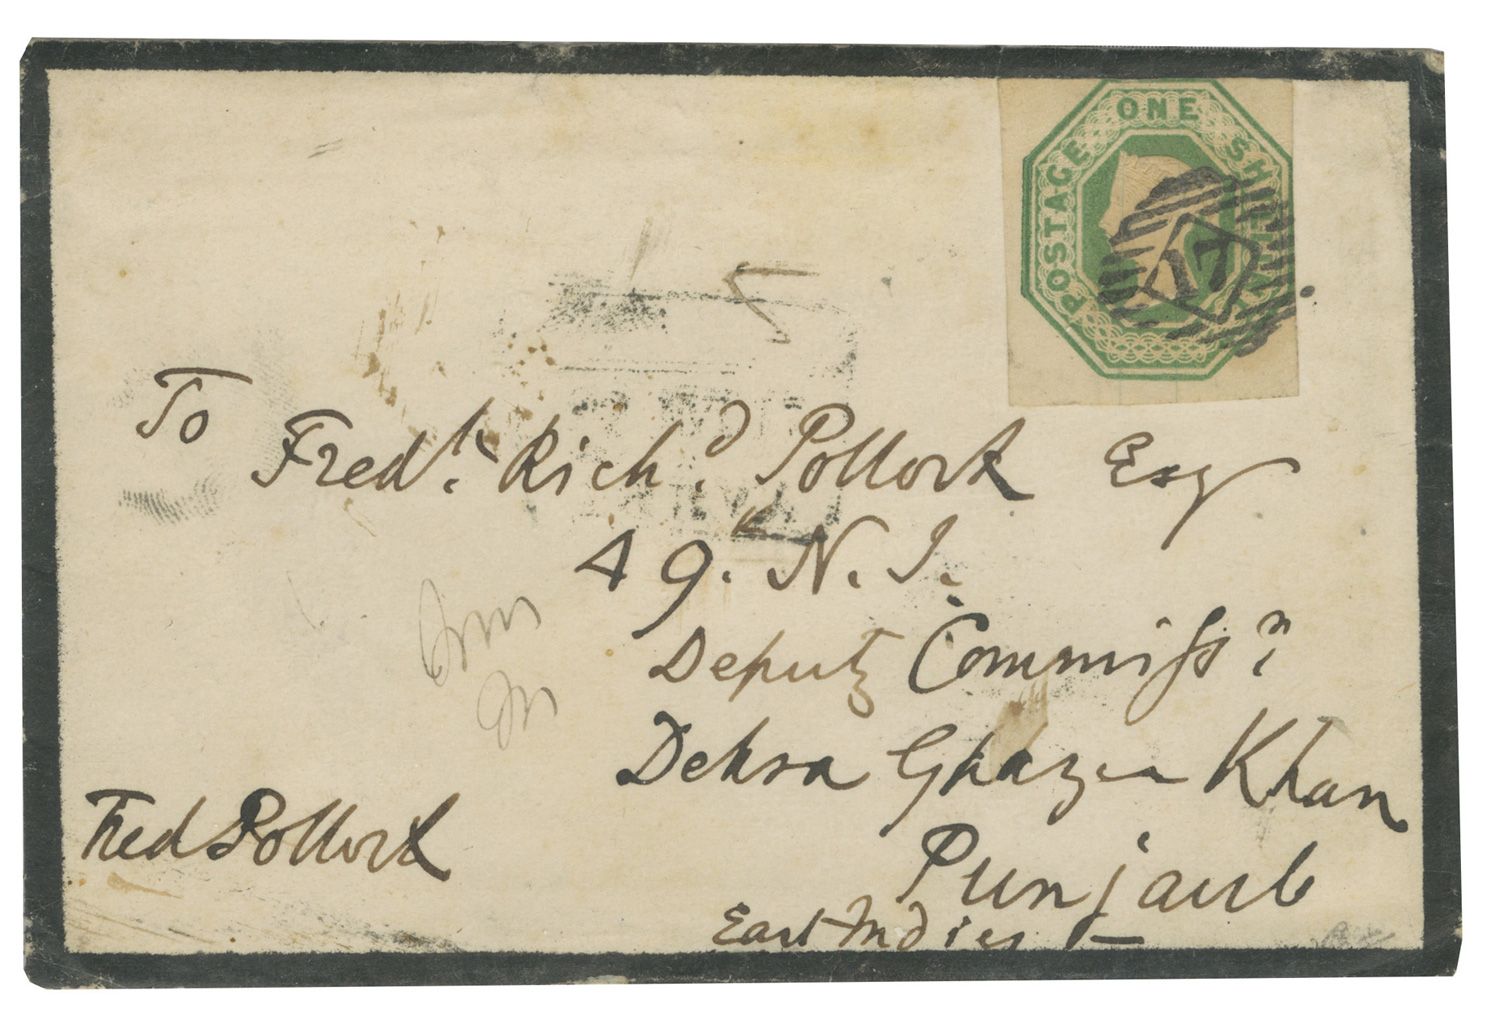 POSTAGE ONE SHILLING
17
To
Fredk. Richd. Pollock Esq
49th. N. I.
Deputy Commissr
Dehra Ghazee Khan
Fred Pollock
Punjaub
East Indies